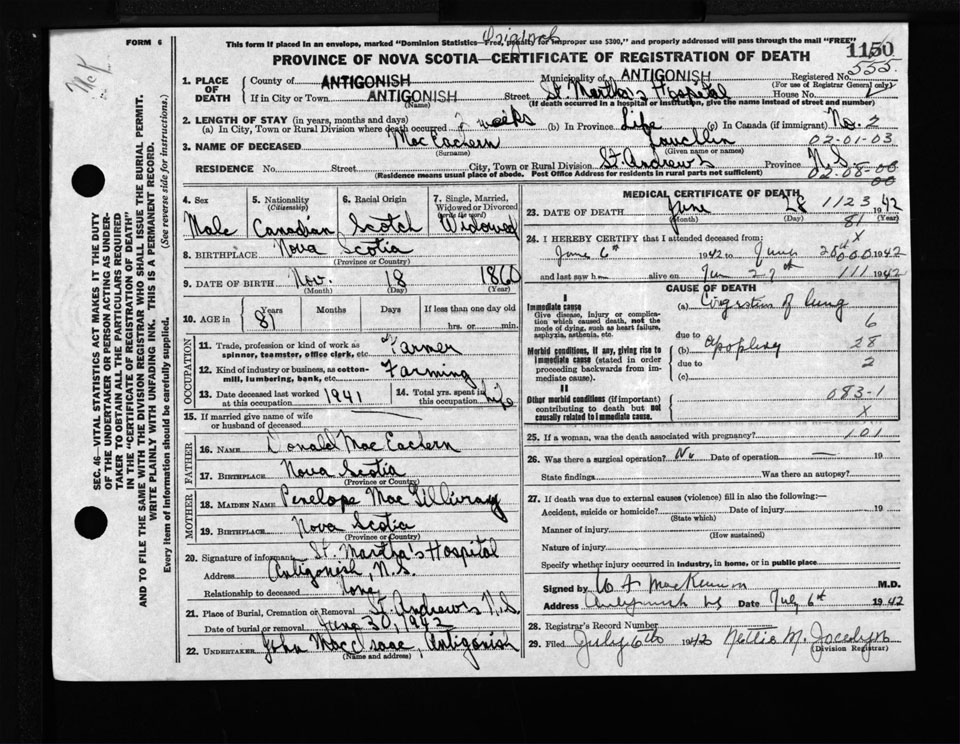 Original
FORM 6 This form if placed in an envelope, marked "Dominion Statistics—Free, penalty for improper use $300," and properly addressed will pass through the mail "FREE"
PROVINCE OF NOVA SCOTIA—CERTIFICATE OF REGISTRATION OF DEATH 1150
555
McK
SEC. 46—VITAL STATISTICS ACT MAKES IT THE DUTY
OF THE UNDERTAKER OR PERSON ACTING AS UNDER-
TAKER TO OBTAIN ALL THE PARTICULARS REQUIRED
IN THE "CERTIFICATE OF REGISTRATION OF DEATH"
AND TO FILE THE SAME WITH THE DIVISION REGISTRAR WHO SHALL ISSUE THE BURIAL PERMIT.
WRITE PLAINLY WITH UNFADING INK. THIS IS A PERMANENT RECORD.
Every item of information should be carefully supplied. (See reverse side for instructions.)
1. PLACE OF DEATH County of ANTIGONISH Municipality of ANTIGONISH Registered No.
(For use of Registrar General only)
If in City or Town ANTIGONISH Street St. Martha's Hospital House No.
(Name) (If death occurred in a hospital or institution, give the name instead of street and number)
2. LENGTH OF STAY (in years, months and days)
(a) In City, Town or Rural Division where death occurred weeks (b) In Province Life (c) In Canada (if immigrant) No. 2
3. NAME OF DECEASED MacEachern Lauchlin 02-01-03
(Surname) (Given name or names)
RESIDENCE No. Street City, Town or Rural Division St. Andrew's Province N.S.
(Residence means usual place of abode. Post Office Address for residents in rural parts not sufficient) 02-08-00
00
4. Sex 5. Nationality (Citizenship) 6. Racial Origin 7. Single, Married, Widowed or Divorced (write the word)
Male Canadian Scotch Widowed
8. BIRTHPLACE Nova Scotia
(Province or Country)
9. DATE OF BIRTH Nov. 18 1860
(Month) (Day) (Year)
10. AGE in 81 Years Months Days If less than one day old
hrs. or min.
OCCUPATION
11. Trade, profession or kind of work as spinner, teamster, office clerk, etc. Farmer
12. Kind of industry or business, as cotton-mill, lumbering, bank, etc. Farming
13. Date deceased last worked at this occupation 1941 14. Total yrs. spent in this occupation Life
15. If married give name of wife or husband of deceased
FATHER
16. NAME Donald MacEachern
17. BIRTHPLACE Nova Scotia
(Province or Country)
MOTHER
18. MAIDEN NAME Penelope MacGillivray
19. BIRTHPLACE Nova Scotia
(Province or Country)
20. Signature of informant St. Martha's Hospital
Address Antigonish, N.S.
Relationship to deceased None
21. Place of Burial, Cremation or Removal St. Andrew's N.S.
Date of burial or removal June 30, 1942
22. UNDERTAKER John MacIsaac, Antigonish
(Name and address)
MEDICAL CERTIFICATE OF DEATH
23. DATE OF DEATH June 28 1123 1942
(Month) (Day) 81 (Year)
24. I HEREBY CERTIFY that I attended deceased from: X
June 6th 1942 to June 28th 000 1942
and last saw h alive on June 27th 111 1942
CAUSE OF DEATH
I
Immediate cause (a) Congestion of lung
Give disease, injury or complication which caused death, not the mode of dying, such as heart failure, asphyxia, asthenia, etc. 6
due to
Morbid conditions, if any, giving rise to immediate cause (stated in order proceeding backwards from immediate cause). (b) apoplexy 28
due to 2
(c)
II
Other morbid conditions (if important) contributing to death but not causally related to immediate cause. 083-1
X
25. If a woman, was the death associated with pregnancy? 101
26. Was there a surgical operation? No Date of operation — 19
State findings Was there an autopsy?
27. If death was due to external causes (violence) fill in also the following:—
Accident, suicide or homicide? Date of injury 19
(State which)
Manner of injury
(How sustained)
Nature of injury
Specify whether injury occurred in industry, in home, or in public place
Signed by W F MacKinnon M.D.
Address Antigonish NS Date July 6th 1942
28. Registrar's Record Number
29. Filed July 6th 1942 Nellie M. Jocelyn
(Division Registrar)